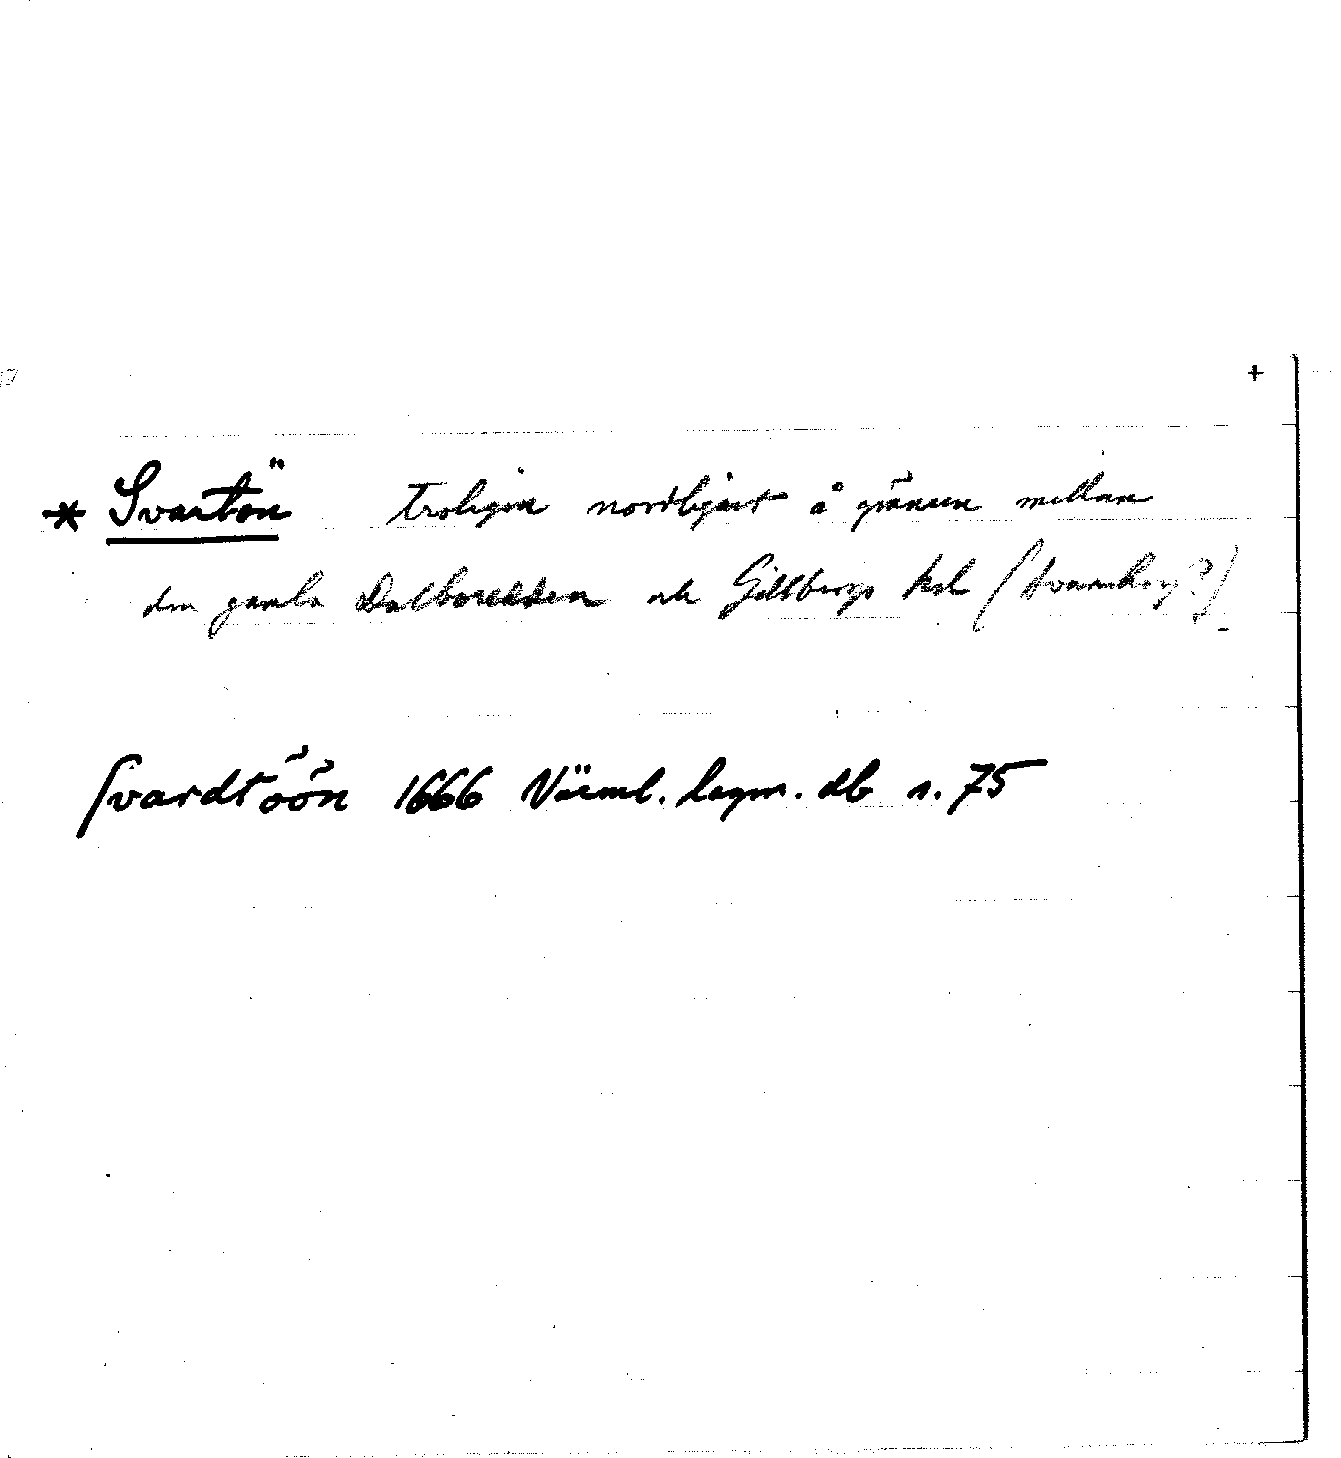 +
* Svartön troligen nordligast å gränsen mellan
den gamla Dalboredden och Gillbergs hd ( ?)
Svardtöön 1666 Värml. lagm. db s. 75